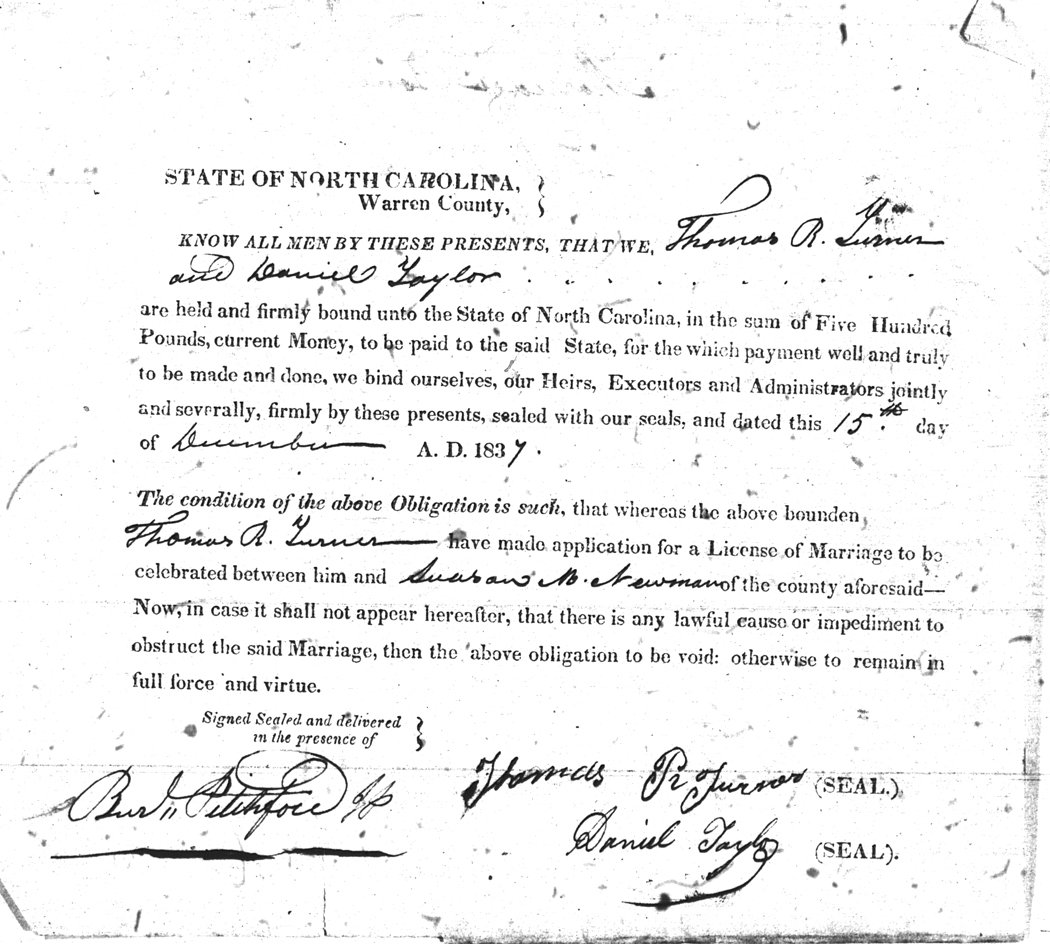 STATE OF NORTH CAROLINA, }
Warren County, }
KNOW ALL MEN BY THESE PRESENTS, THAT WE, Thomas R. Turner
and Daniel Taylor . . . . . . . . .
are held and firmly bound unto the State of North Carolina, in the sum of Five Hundred
Pounds, current Money, to be paid to the said State, for the which payment well and truly
to be made and done, we bind ourselves, our Heirs, Executors and Administrators jointly
and severally, firmly by these presents, sealed with our seals, and dated this 15.th day
of December A. D. 1837.
The condition of the above Obligation is such, that whereas the above bounden,
Thomas R. Turner have made application for a License of Marriage to be
celebrated between him and M. Newman of the county aforesaid—
Now, in case it shall not appear hereafter, that there is any lawful cause or impediment to
obstruct the said Marriage, then the above obligation to be void: otherwise to remain in
full force and virtue.
Signed Sealed and delivered }
in the presence of
Thomas R Turner (SEAL.)
Pitchford JP
Daniel Taylor (SEAL).